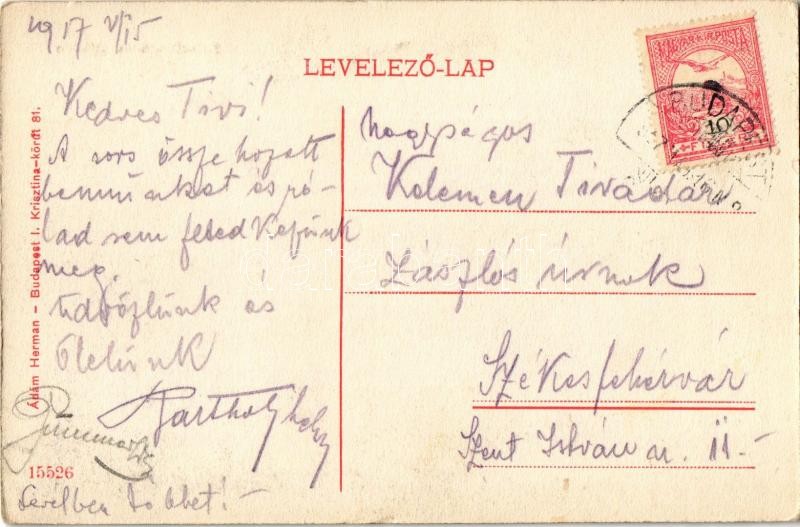 1917 V/15
LEVELEZŐ-LAP
MAGYAR KIR. POSTA
10
BUDAPEST
Kedves Tivi!
A sors össze hozott
bennünket és ró-
lad sem feled
meg.
Üdvözlünk és
Ölelünk
Nagyságos
Kelemen Tivadar
László úrnak
Székesfehérvár
Szent István u. 11.-
Levélben többet! -
15526
Ádám Herman - Budapest I. Krisztina-körút 81.